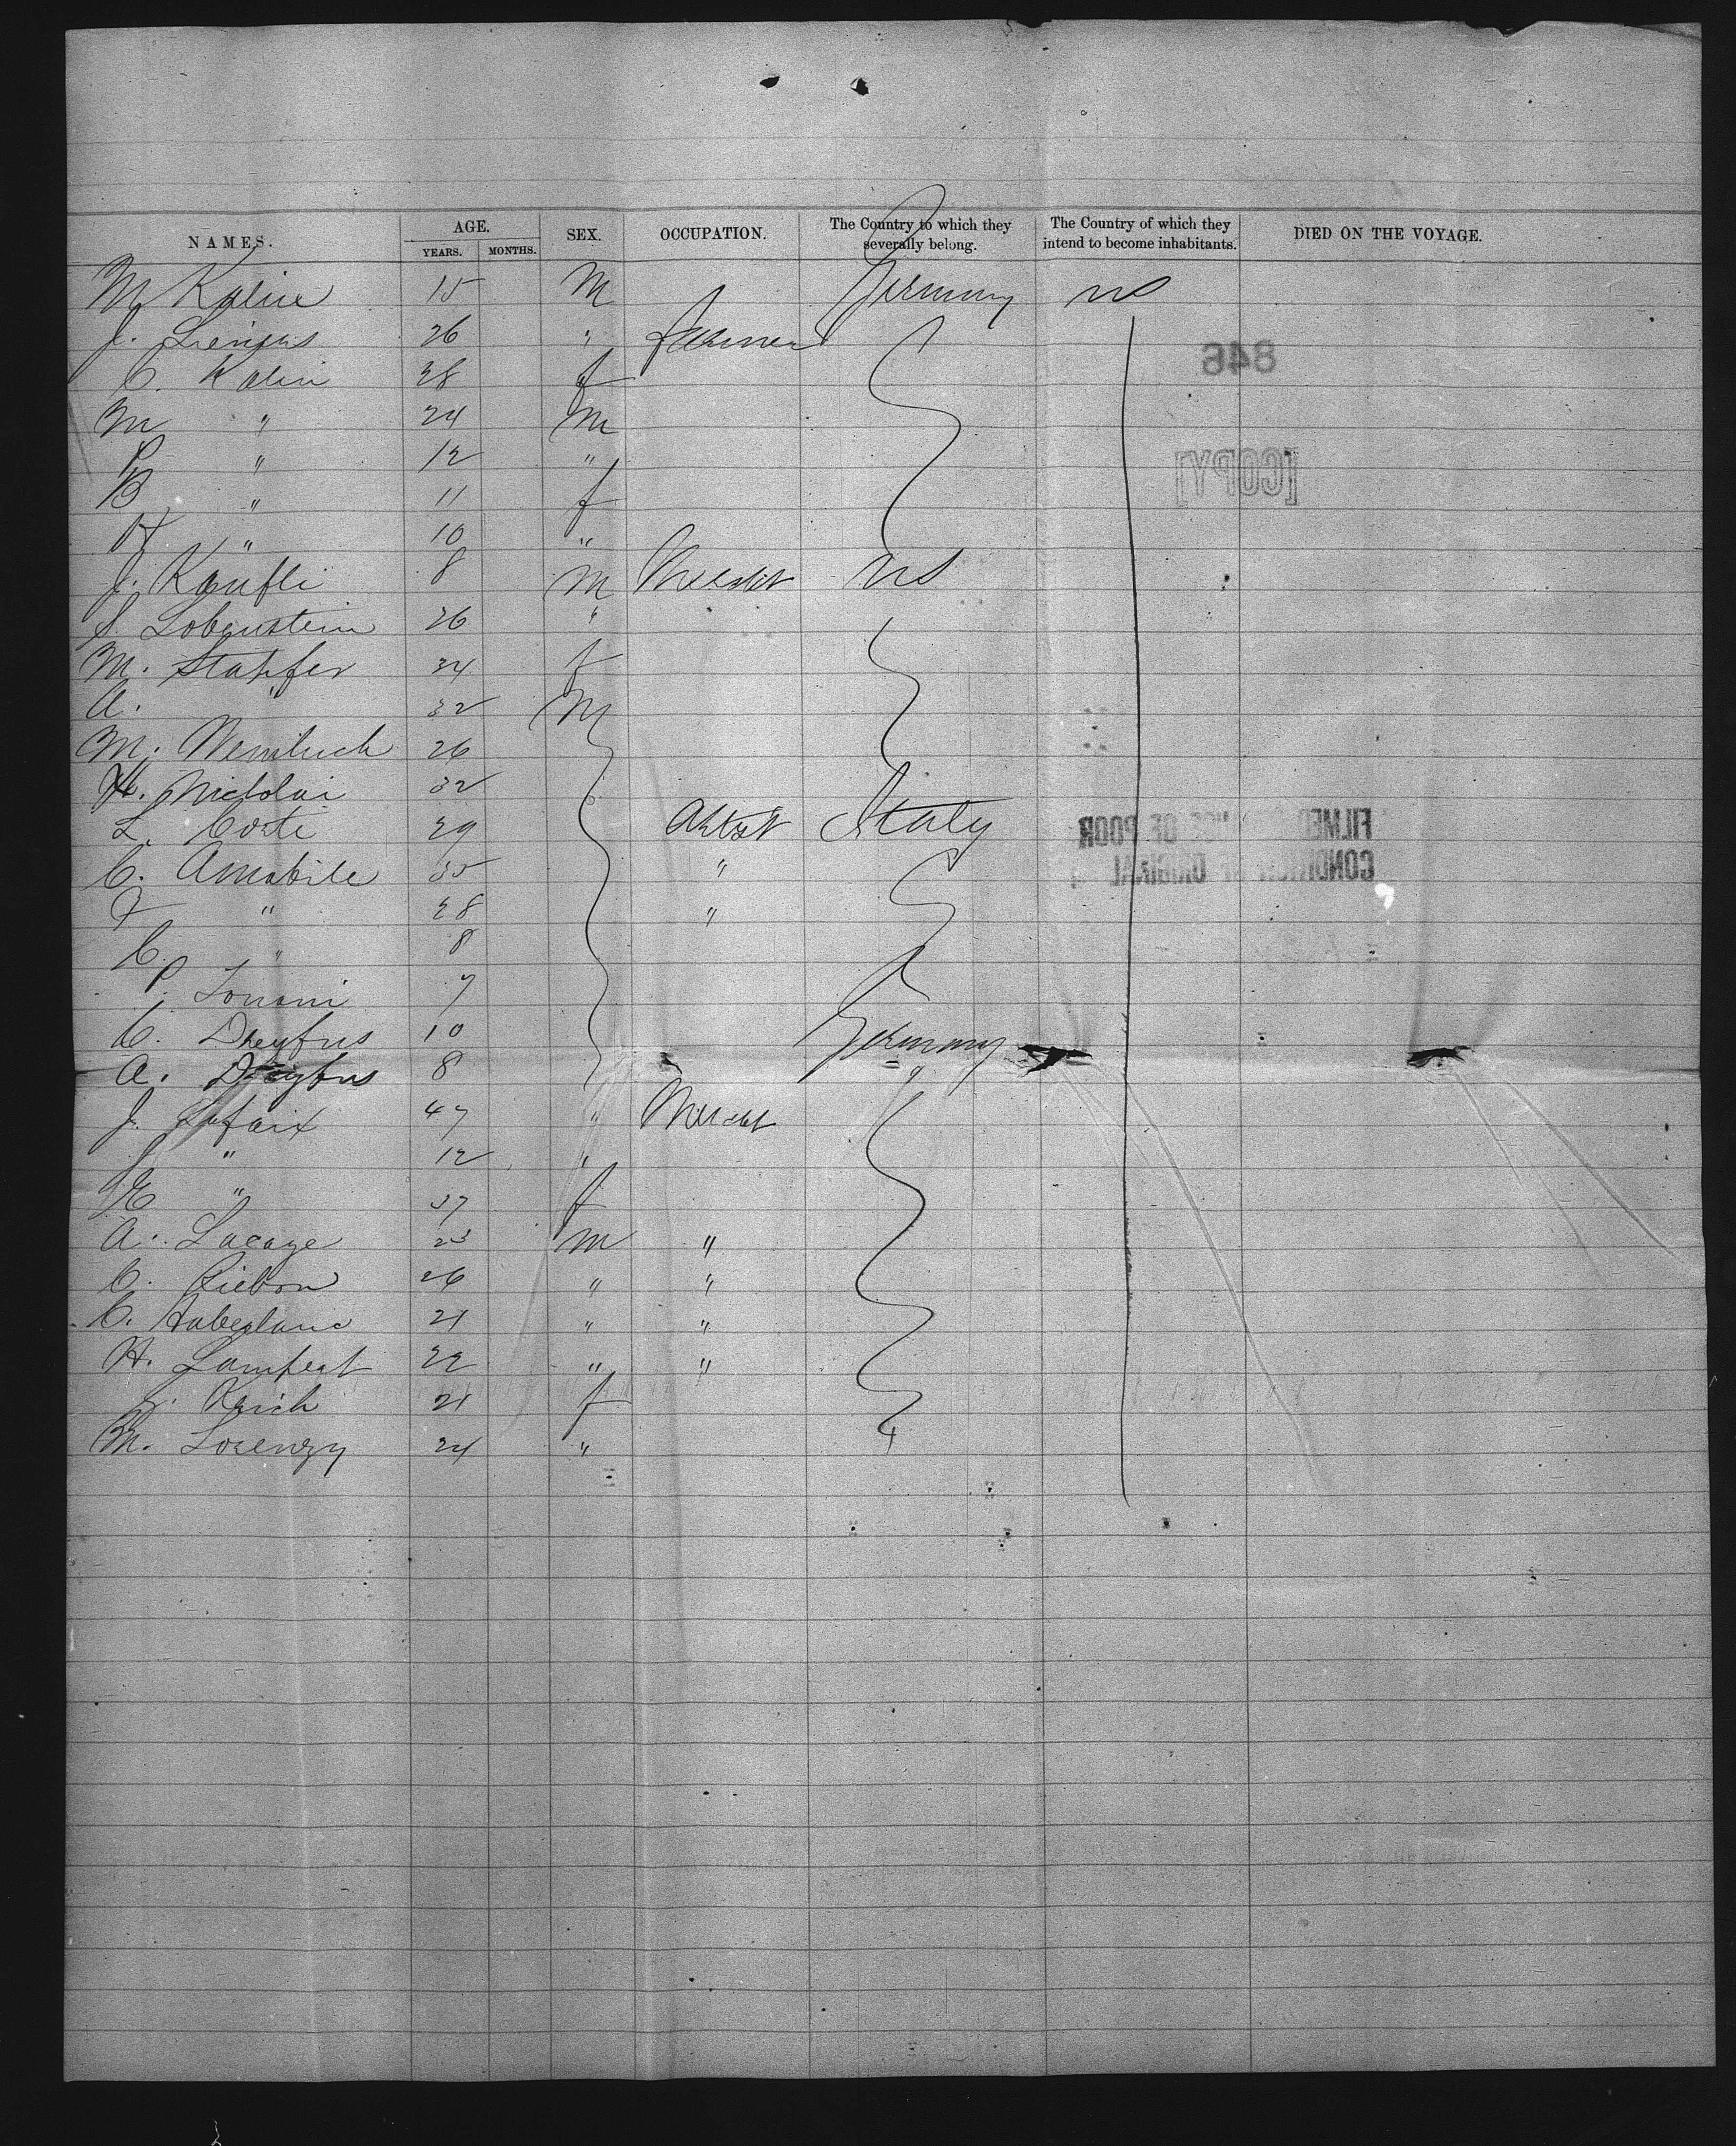 NAMES. AGE. SEX. OCCUPATION. The Country to which they severally belong. The Country of which they intend to become inhabitants. DIED ON THE VOYAGE.
YEARS. MONTHS.
M Kalin 15 M Germany US
J. 26 " Farmer
C. Kalin 28 f
M " 24 M
P " 12 "
B " 11 f
H " 10 "
J. Kaufli 8 M Mercht US
S. Lobenstein 26 "
M. Stapfer 34 f
A. " 32 M
M. 26
H. Nicolai 32
L. Corti 29 Artist Italy
C. Amabile 35 "
F " 28 "
C. " 8
P. 7
C. Dreyfus 10 Germany
A. Dreyfus 8 "
J. Lafaix 47 " Mercht
J " 12 "
E " 37 f
A. Lacaze 23 M "
C. 26 " "
C. 21 " "
H. Lampert 22 " "
21 f
M. Lorenzy 24 "
846
[COPY]
FILMED OF POOR
CONDITION OF ORIGINAL